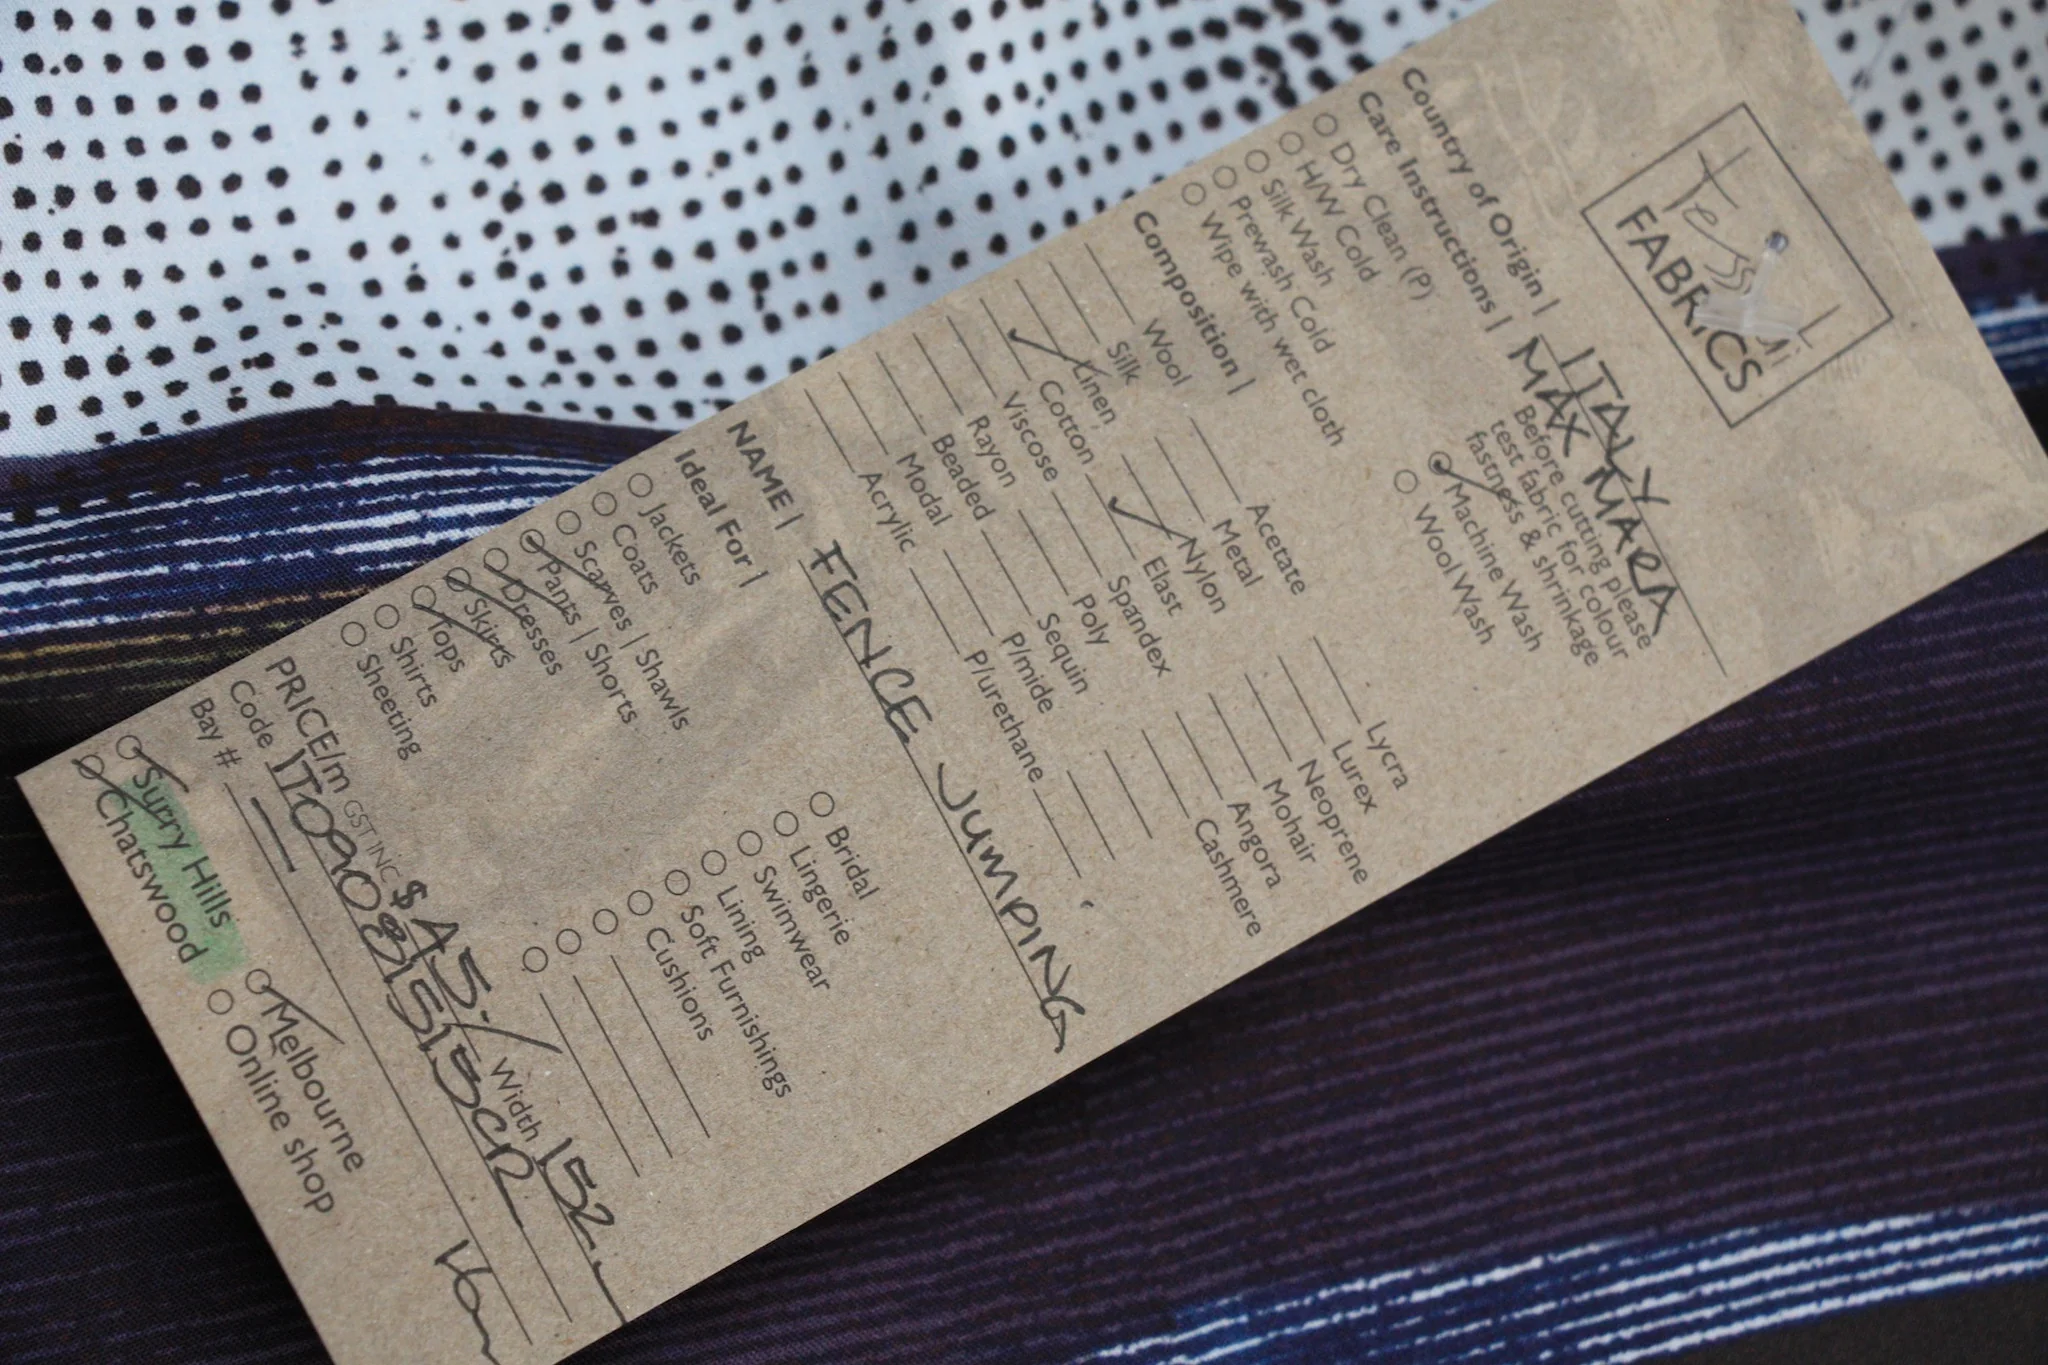 Tessuti
FABRICS
Country of Origin | ITALY
MAX MARA
Care Instructions | Before cutting please
test fabric for colour
fastness & shrinkage
Dry Clean (P)
H/W Cold
Silk Wash
Prewash Cold
Wipe with wet cloth
Machine Wash
Wool Wash
Composition |
Wool Acetate Lycra
Silk Metal Lurex
Linen Nylon Neoprene
Cotton Elast Mohair
Viscose Spandex Angora
Rayon Poly Cashmere
Beaded Sequin
Modal P/mide
Acrylic P/urethane
NAME | FENCE JUMPING
Ideal For |
Jackets Bridal
Coats Lingerie
Scarves | Shawls Swimwear
Pants | Shorts Lining
Dresses Soft Furnishings
Skirts Cushions
Tops
Shirts
Sheeting
PRICE/m GST INC $45.- Width 152
Code
Bay #
Surry Hills Melbourne
Chatswood Online shop